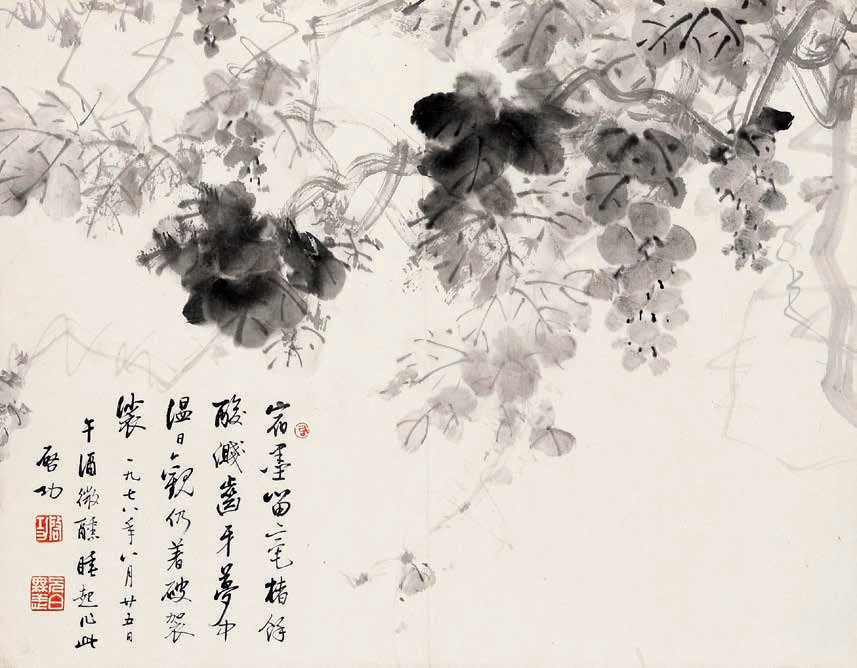 宿墨留毫楮餘
酸濺齒牙夢中
温日觀仍着破袈
裟 一九七八年八月廿五日
午酒微醺睡起作此
啓功